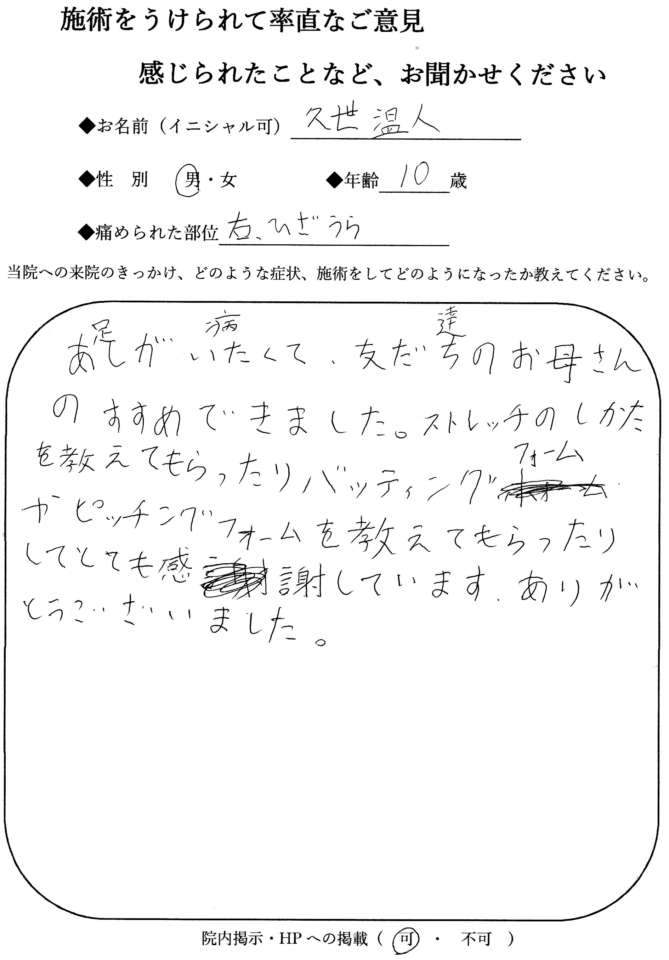 施術をうけられて率直なご意見
感じられたことなど、お聞かせください
◆お名前（イニシャル可） 久世 温人
◆性　別　男・女　◆年齢 10 歳
◆痛められた部位 右、ひざうら
当院への来院のきっかけ、どのような症状、施術をしてどのようになったか教えてください。
足 病 達
あしがいたくて、友だちのお母さん
のすすめできました。ストレッチのしかた
フォーム
を教えてもらったりバッティング
やピッチングフォームを教えてもらったり
してとても感謝しています。ありが
とうございました。
院内掲示・HPへの掲載（ 可 ・ 不可 ）